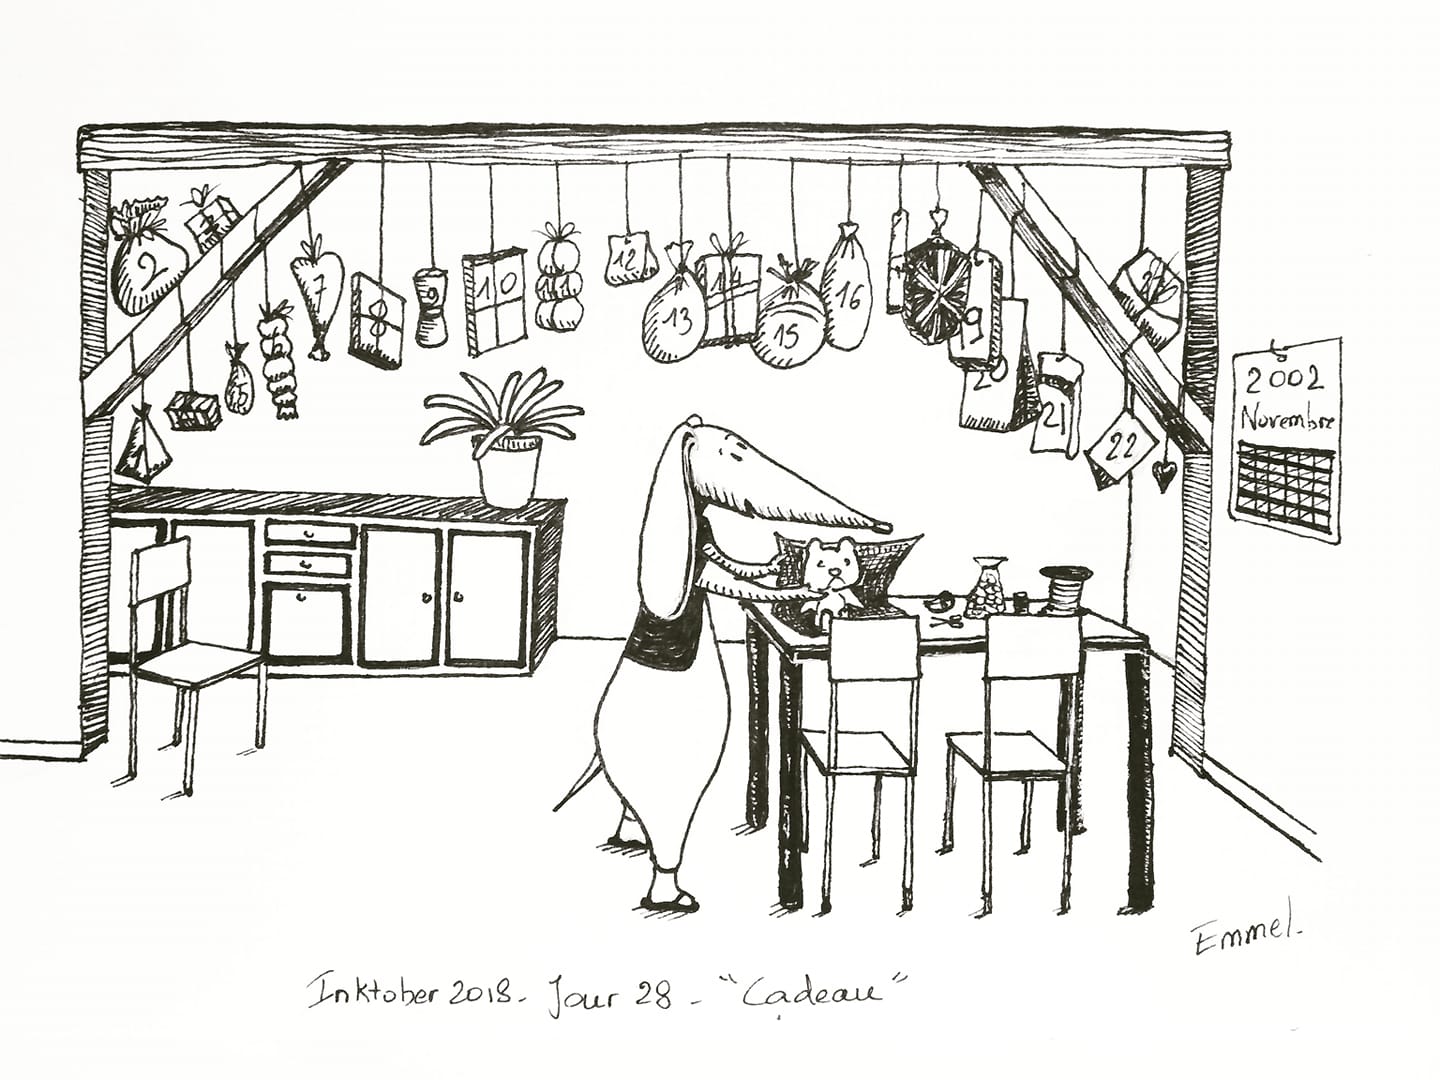 2
7
8
9
10
11
12
13
14
15
16
5
19
20
21
22
24
2002
Novembre
Emmel.
Inktober 2018. Jour 28 - "Cadeau"